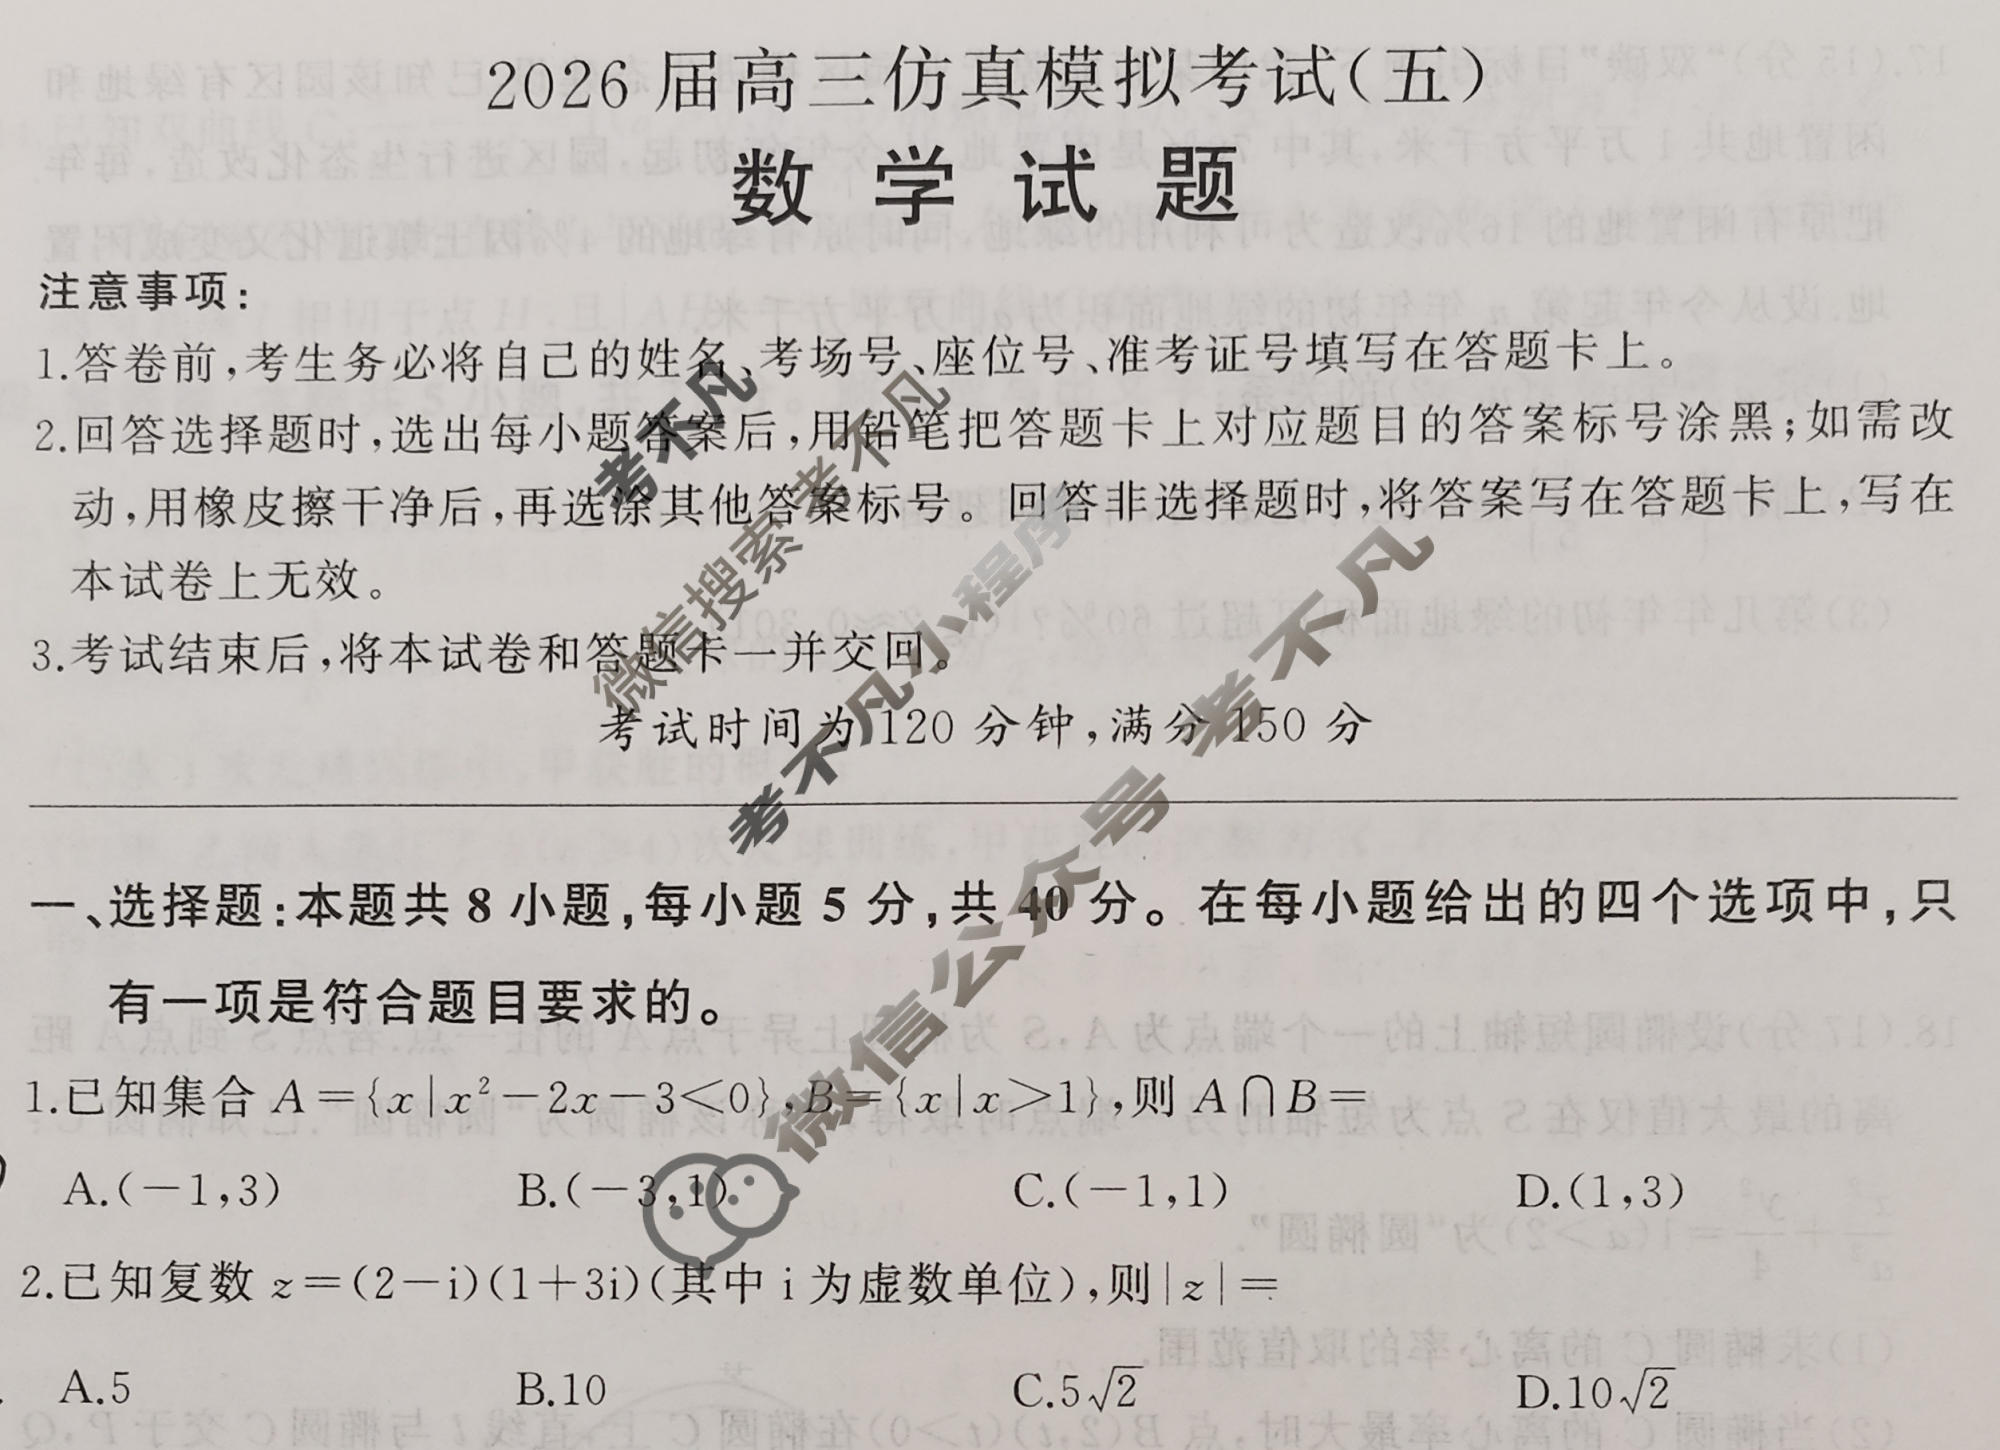 2026 届高三仿真模拟考试(五)
数 学 试 题
注意事项:
1.答卷前,考生务必将自己的姓名、考场号、座位号、准考证号填写在答题卡上。
2.回答选择题时,选出每小题答案后,用铅笔把答题卡上对应题目的答案标号涂黑;如需改
动,用橡皮擦干净后,再选涂其他答案标号。回答非选择题时,将答案写在答题卡上,写在
本试卷上无效。
3.考试结束后,将本试卷和答题卡一并交回。
考试时间为 120 分钟,满分 150 分
一、选择题:本题共 8 小题,每小题 5 分,共 40 分。在每小题给出的四个选项中,只
有一项是符合题目要求的。
1.已知集合 A={x|x²-2x-3<0},B={x|x>1},则 A∩B=
A.(-1,3) B.(-3,1) C.(-1,1) D.(1,3)
2.已知复数 z=(2-i)(1+3i)(其中 i 为虚数单位),则|z|=
A.5 B.10 C.5√2 D.10√2
考不凡
微信搜索 考不凡
考不凡小程序
微信公众号 考不凡